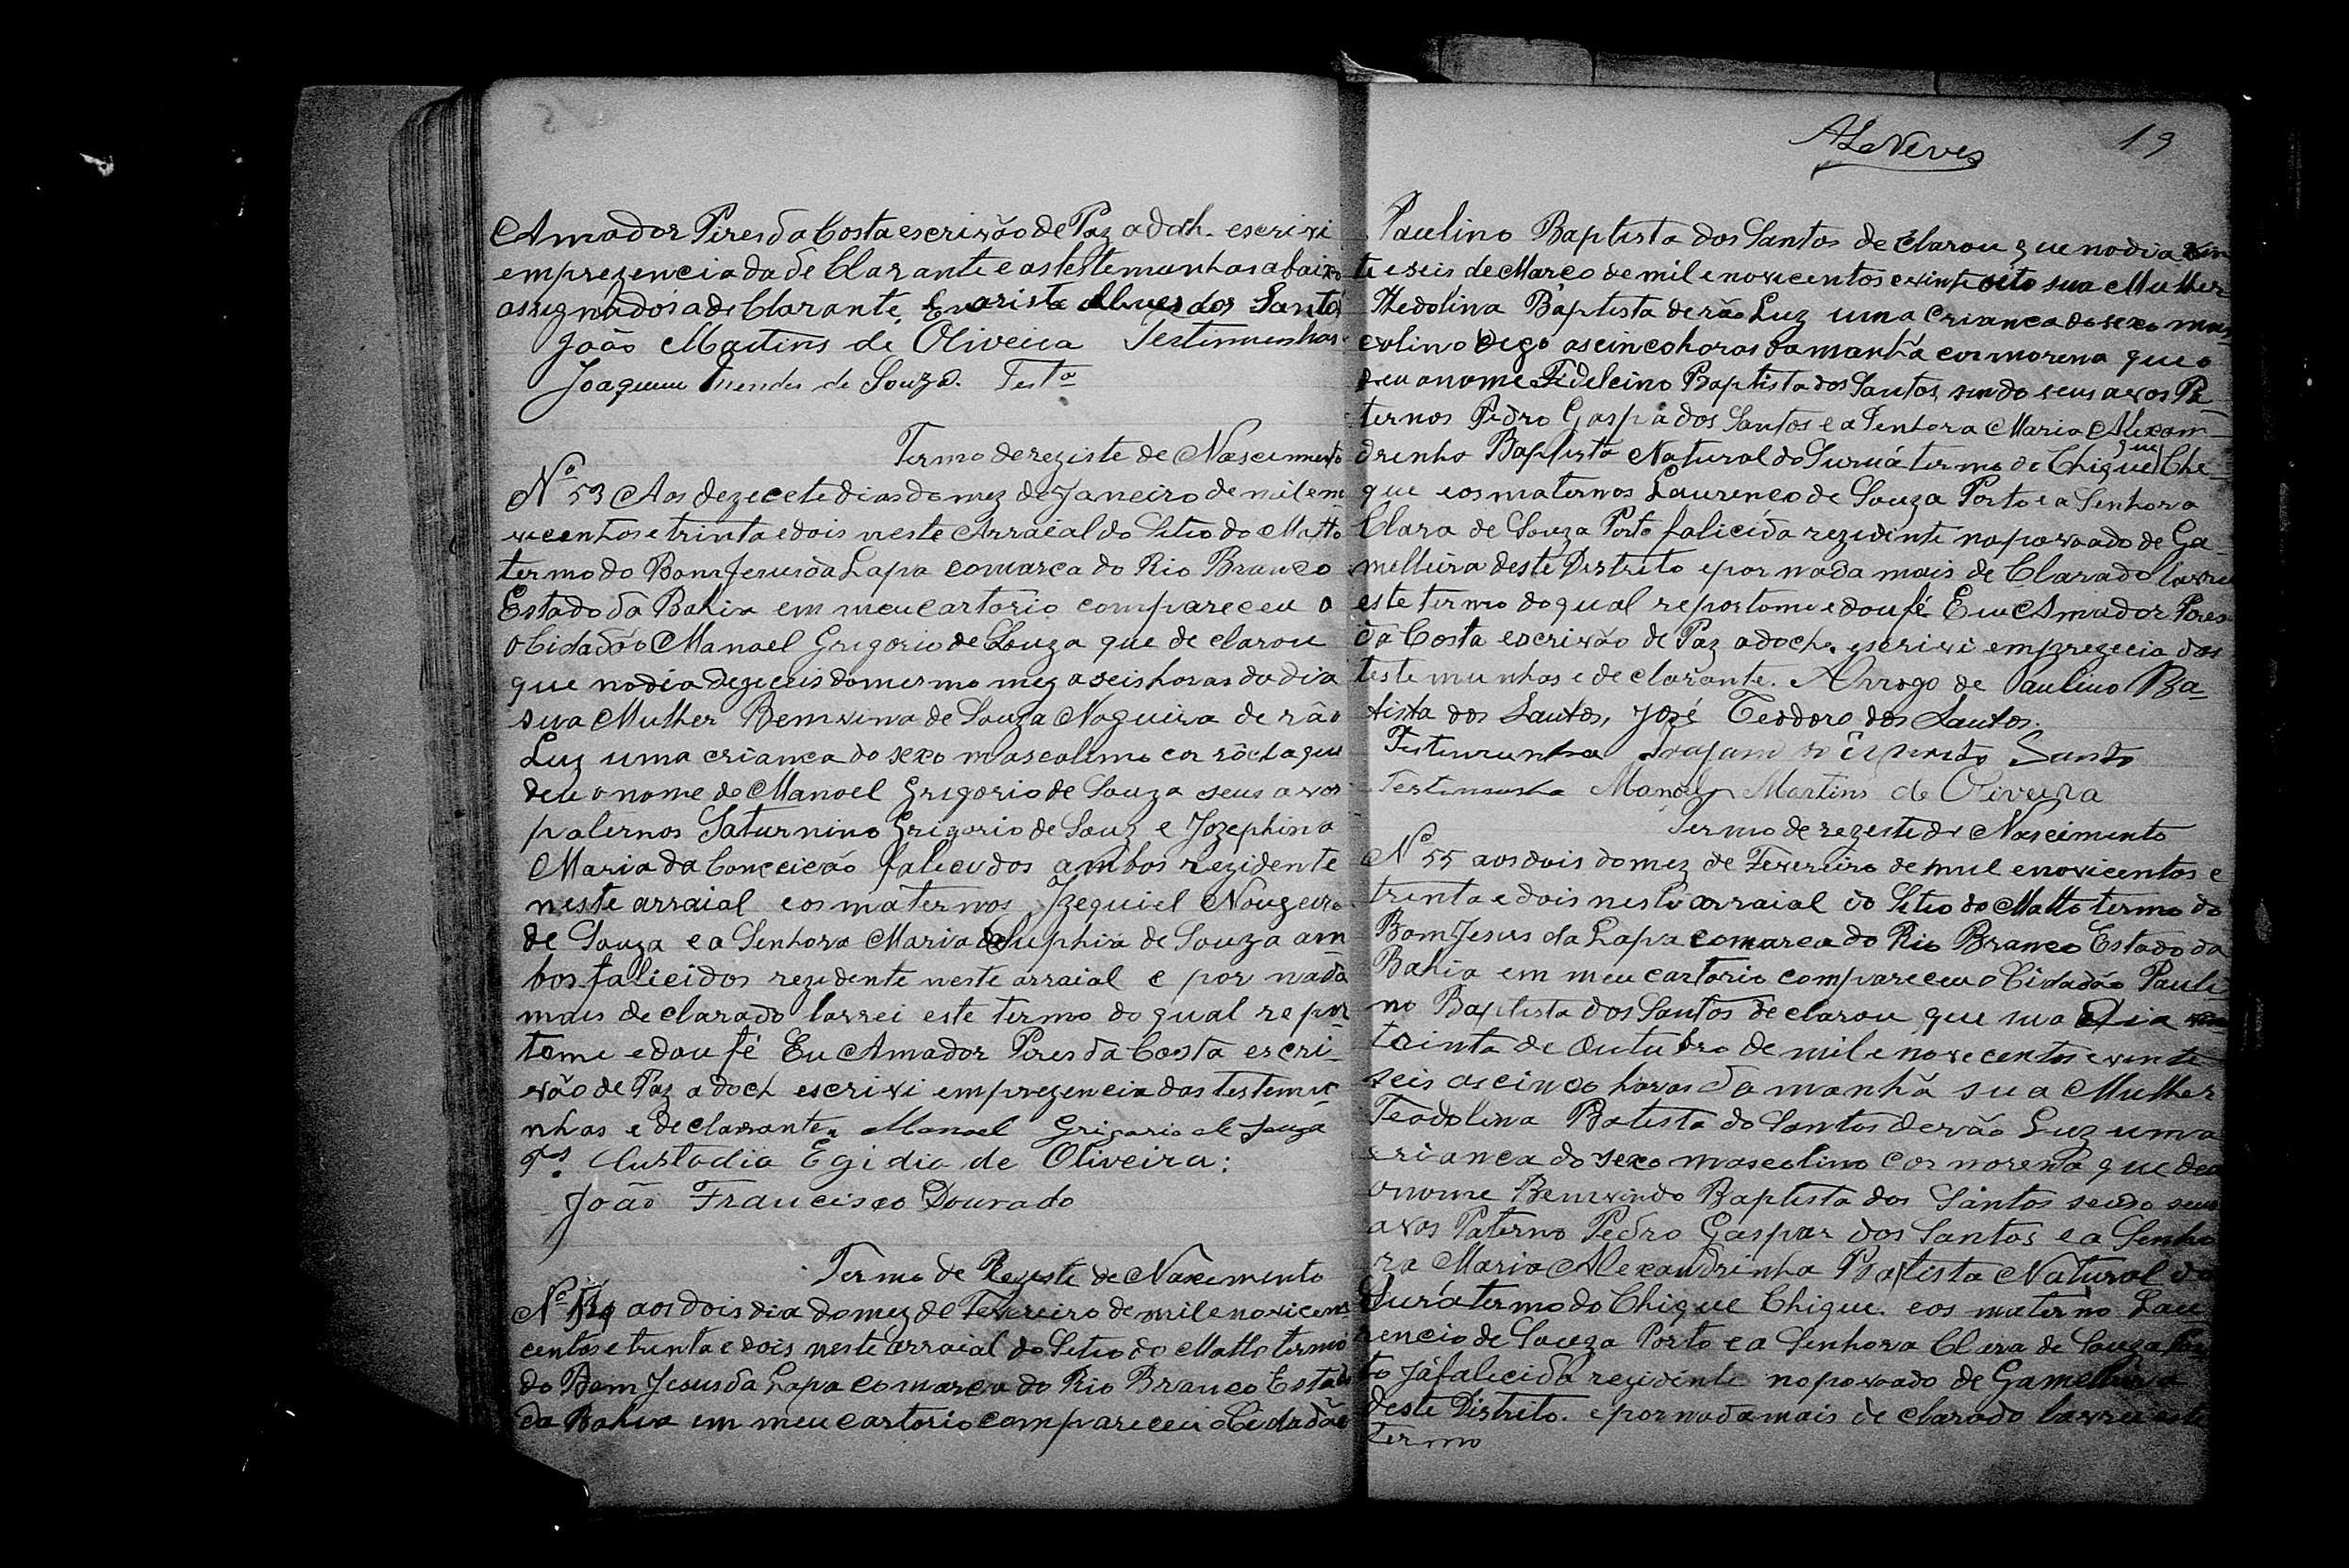 Amador Pires da Costa escrivão de Paz adoch. escrivi
emprezencia da de Clarante e as testemunhas abaixo
assignados a de Clarante, Evarista Alves dos Santos
João Martins de Oliveira Testimunhas
Joaquim Mendes de Souza. Testª
Termo de registe de Nascimento
Nº 53 Aos dezecete dias do mez de Janeiro de mil e no
vecentos e trinta e dois neste Arraial do Sitio do Matto
termo do Bom Jesus da Lapa comarca do Rio Branco
Estado da Bahia em meu cartorio compareceu o
o Cidadão Manoel Grigorio de Souza que de clarou
que no dia dezeceis do mesmo mez a seis horas do dia
sua Mulher Bemvina de Souza Nogueira de rão
Luz uma criança do sexo mascolino cor rôcha que
deu o nome de Manoel Grigorio de Souza seus avos
paternos Saturnino Grigorio de Souz e Jozephina
Maria da Conceicão falicidos ambos rezidente
neste arraial e os maternos Izequiel Nougeira
de Souza e a Senhora Maria Suphia de Souza am
bos falicidos rezidente neste arraial e por nada
mais de clarado larrei este termo do qual repor
tome e dou fé Eu Amador Pires da Costa escri_
vão de Paz adoch escrivi emprezencia das testemu_
nhas e declarante. Manoel Grigorio de Souza
Tes. Custodia Egidio de Oliveira:
João Francisco Dourado
Termo de Registe de Nascimento
Nº 54 aos dois dia do mez de Fevereiro de mil e novicen
centos e trinta e dois neste arraial do Sitio do Matto termo
do Bom Jesus da Lapa comarca do Rio Branco Estado
da Bahia em meu cartorio compareceu o Cidadão
ALNeves 19
Paulino Baptista dos Santos de clarou que no dia vin
te e seis de Marco de mil e novicentos e vinte oito sua Mulher
Thedolina Baptista de rão Luz uma crianca do sexo mas
colino digo as cinco horas da manhã cor morena que o
deu o nome Fidelcino Baptista dos Santos, sendo seus avos Pa
ternos Pedro Gaspa dos Santos e a Senhora Maria Alixam_
drinha Baptista Natural do Suruá termo do Chique Che_
que e os maternos Laurenco de Souza Porto e a Senhora
Clara de Souza Porto falicida rezidente no povoado de Ga_
melleira deste Destrito e por nada mais de Clarado lavrei
este termo do qual reportome e dou fé Eu Amador Pires
da Costa escrivão de Paz adoch. escrivi emprezecia das
testemunhas e de clarante. Arrogo de Paulino Ba_
tista dos Santos, José Teodoro dos Santos.
Testemunha do Espirito Santo
Testimunha Manoel Martins de Oliveira
Termo de registe de Nascimento
Nº 55 aos dois do mez de Fevereiro de mil e novicentos e
trinta e dois neste arraial do Sitio do Matto termo do
Bom Jesus da Lapa comarca do Rio Branco Estado da
Bahia em meu cartorio compareceu o Cidadão Pauli
no Baptista dos Santos de clarou que sua Dia
trinta de Outubro de mil e novecentos e vinte
seis as cinco horas da manhã sua Mulher
Teodolina Batista do Santos de rão Luz uma
crianca do sexo mascolino cor morena que deu
o nome Bemvindo Baptista dos Santos sendo seus
avos Paterno Pedro Gaspar dos Santos e a Senho
ra Maria Alexandrinha Batista Natural do
Suruá termo do Chique Chique. e os materno Lau
rencio de Souza Porto e a Senhora Clara de Souza Por
to já falicida rezidente no povoado de Gamelleira
deste Distrito. e por nada mais de clarado lavrei este
termo